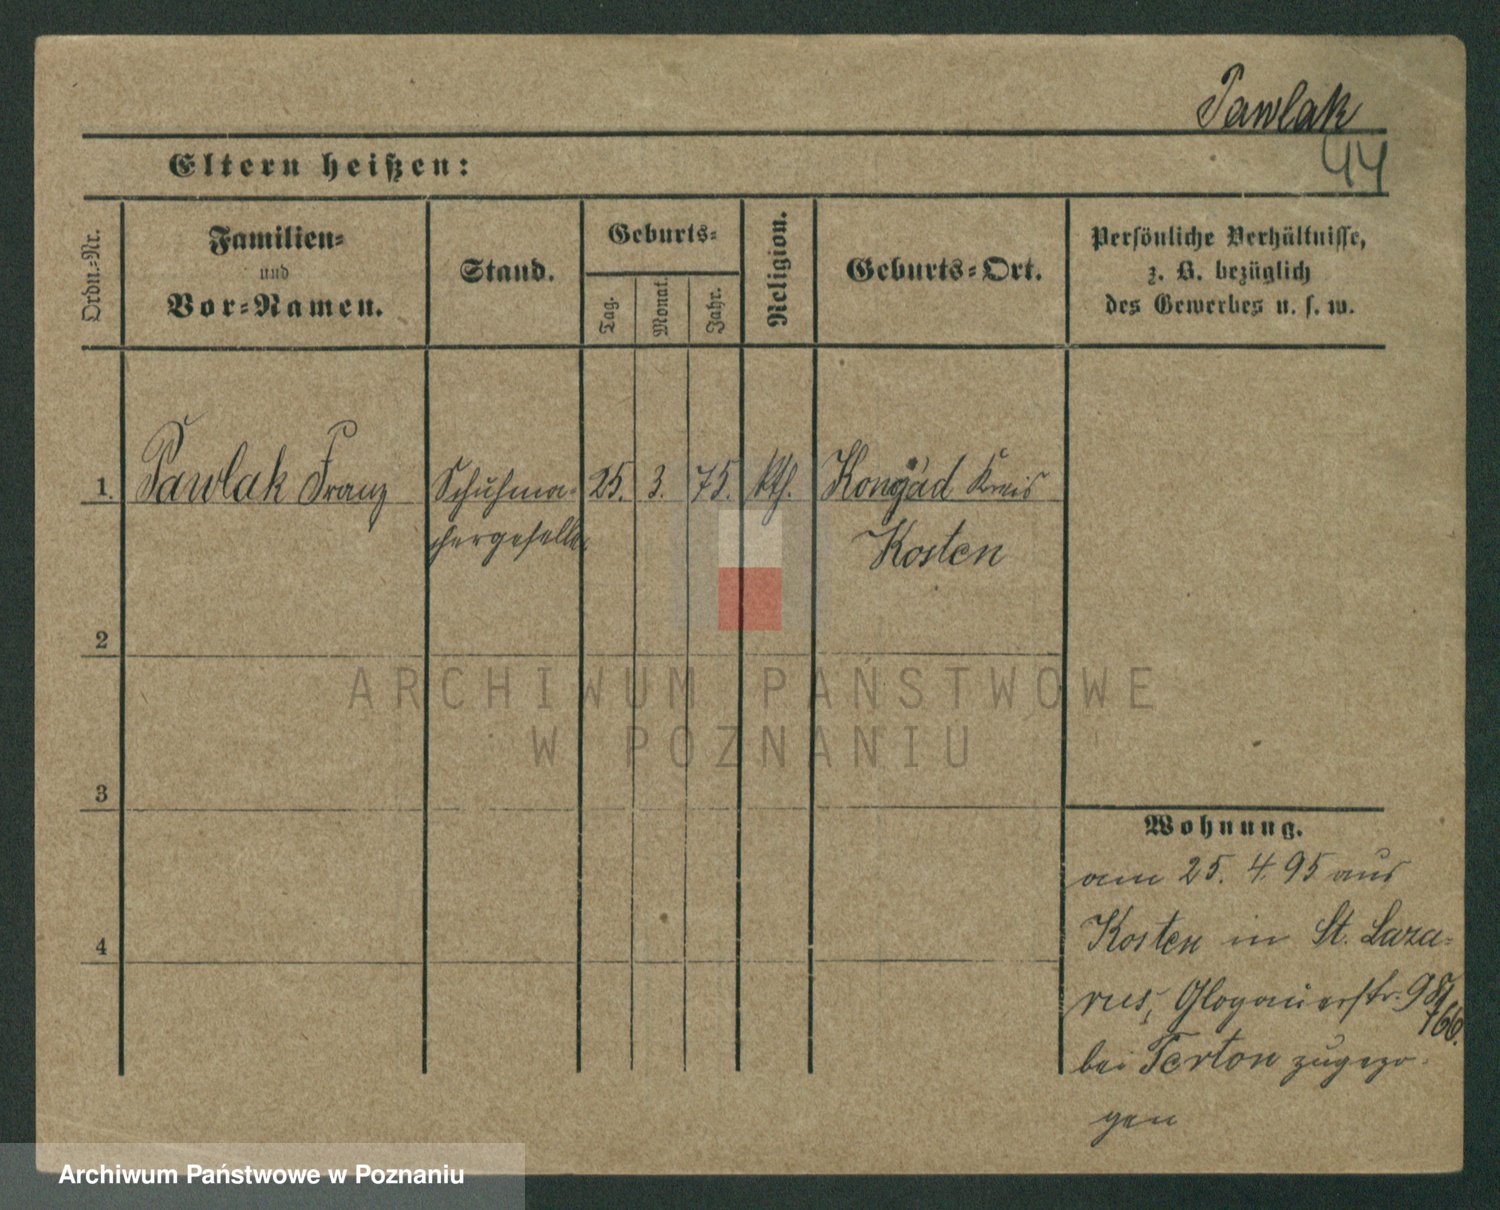 Pawlak
44
Eltern heißen:
Ordn.-Nr.
Familien-
und
Vor-Namen.
Stand.
Geburts-
Tag.
Monat.
Jahr.
Religion.
Geburts-Ort.
Persönliche Verhältnisse,
z. B. bezüglich
des Gewerbes u. s. w.
1. Pawlak Franz Schuhma- 25. 3. 75. kth. Kreis
chergeselle Kosten
2
3
4
Wohnung.
am 25. 4. 95 aus
Kosten in St. Laza-
rus, Glogauerstr. 98/
166.
bei Terton zugezo-
gen
ARCHIWUM PAŃSTWOWE
W POZNANIU
Archiwum Państwowe w Poznaniu